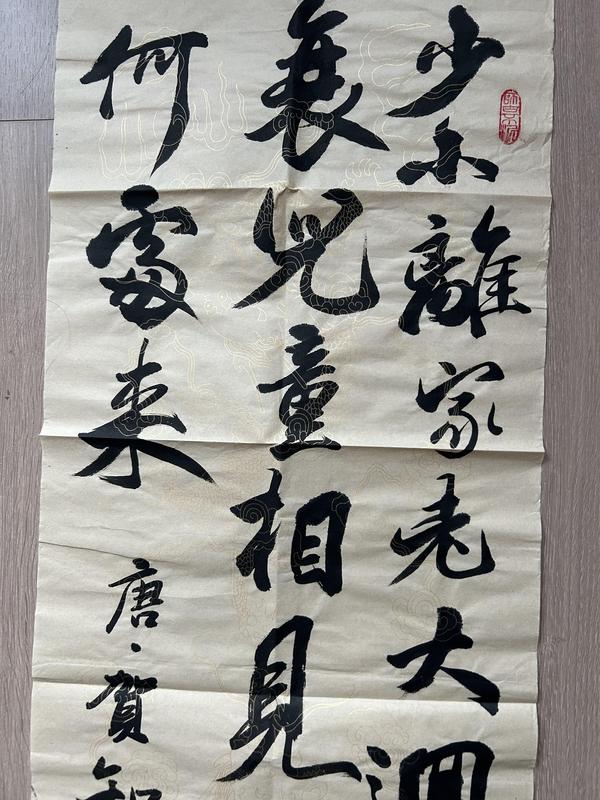 少小離家老大迴
衰兒童相見
何處来
唐、賀知